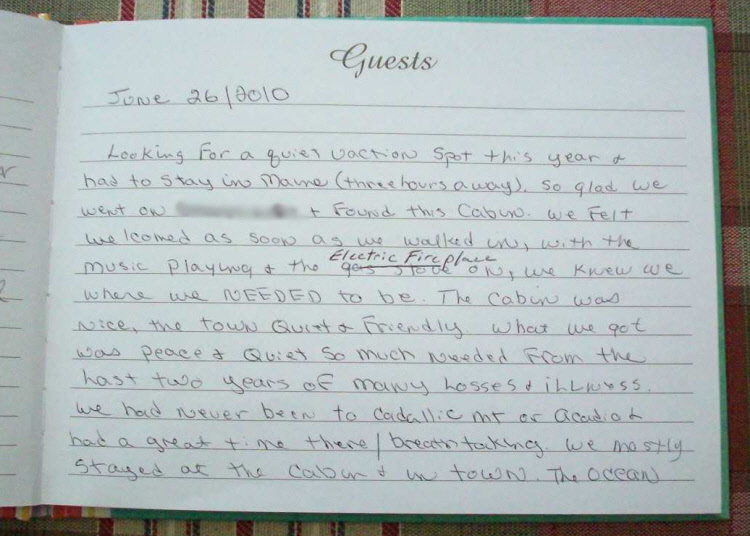 Guests
June 26/2010
Looking For a quiet vaction spot this year &
had to stay in Maine (three hours away). So glad we
went on + Found this Cabin. We Felt
welcomed as soon as we walked in, with the
Electric Fireplace
music playing & the gas stove on, we knew we
where we NEEDED to be. The cabin was
nice, the town Quiet & Friendly. What we got
was peace & Quiet so much needed From the
Last two years of many Losses & iLLNess.
We had never been to Cadallic mt or Acadia &
had a great time there / breath taking. We mostly
stayed at the Cabin & in town. The Ocean